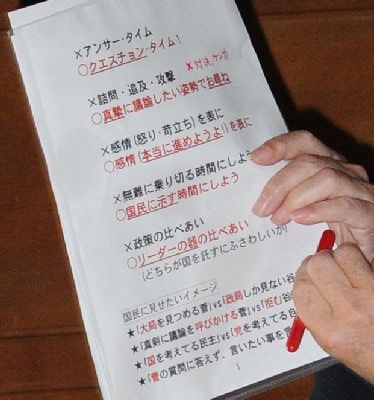 ×アンサー・タイム
○クエスチョン・タイム!
×詰問・追及・攻撃
○真摯に議論したい姿勢でお尋ね
×感情(怒り・苛立ち)を表に
○感情(本当に進めようよ!)を表に
×無難に乗り切る時間にしよう
○国民に示す時間にしよう
×政策の比べあい
○リーダーの器の比べあい
(どちらが国を託すにふさわしいか)
国民に見せたいイメージ
★「大局を見つめる菅」vs「政局しか見ない谷
★「真剣に議論を呼びかける菅」vs「拒む谷
★「国を考えてる民主」vs「党を考えてる自
★「菅の質問に答えず、言いたい事を言
1